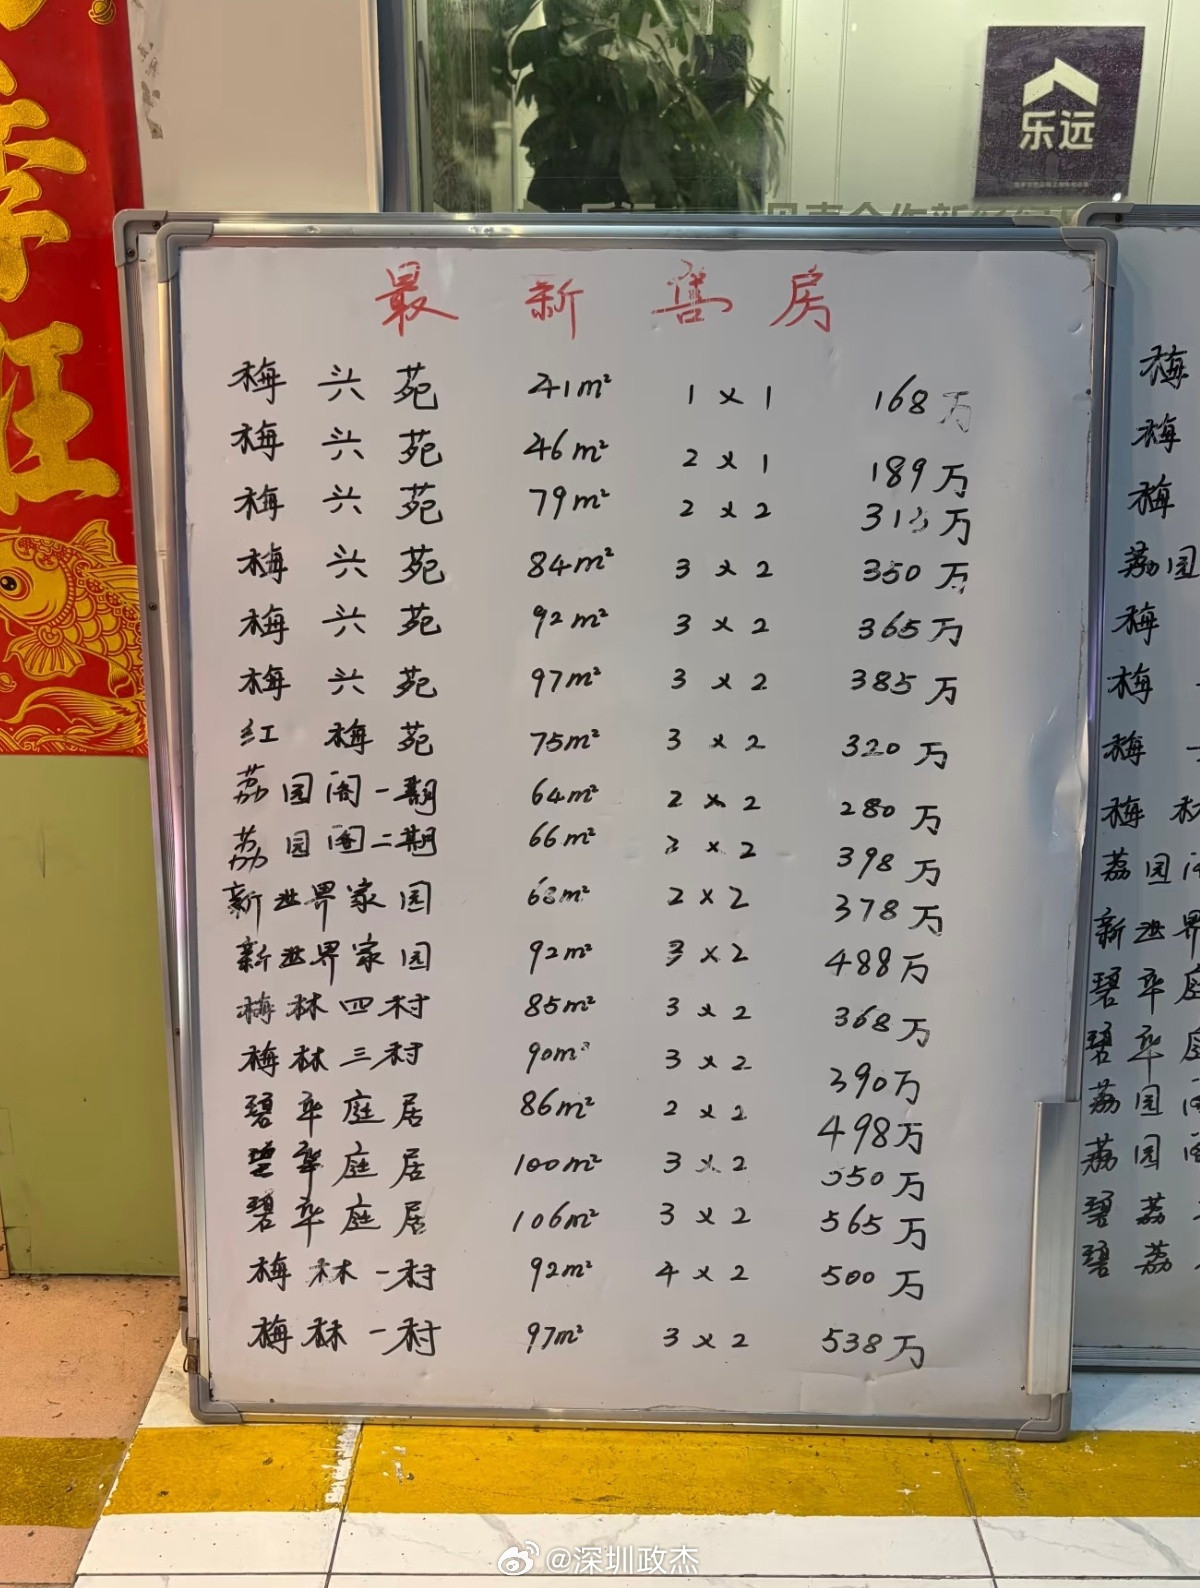 乐远
最新售房
梅兴苑 41m² 1×1 168万
梅兴苑 46m² 2×1 189万
梅兴苑 79m² 2×2 313万
梅兴苑 84m² 3×2 350万
梅兴苑 92m² 3×2 365万
梅兴苑 97m² 3×2 385万
红梅苑 75m² 3×2 320万
荔园阁一期 64m² 2×2 280万
荔园阁二期 66m² ×2 398万
新世界家园 68m² 2×2 378万
新世界家园 92m² 3×2 488万
梅林四村 85m² 3×2 368万
梅林三村 90m² 3×2 390万
碧华庭居 86m² 2×2 498万
碧华庭居 100m² 3×2 550万
碧华庭居 106m² 3×2 565万
梅林一村 92m² 4×2 500万
梅林一村 97m² 3×2 538万
梅
梅
梅
荔园
梅
梅
梅
梅林
荔园阁
新世界
碧华庭
碧华庭
荔园阁
荔园阁
碧荔
碧荔
旺
@深圳政杰